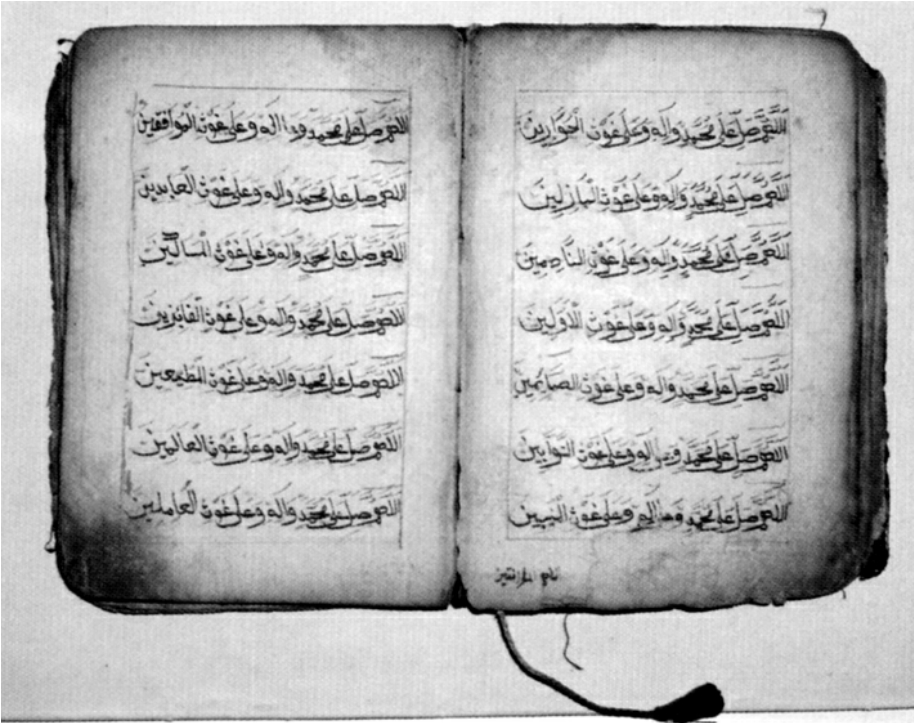 اللهم صل على محمد وآله وعلى غوث الحوارين
اللهم صل على محمد وآله وعلى غوث النازلين
اللهم صل على محمد وآله وعلى غوث الناصحين
اللهم صل على محمد وآله وعلى غوث الأولين
اللهم صل على محمد وآله وعلى غوث الصائمين
اللهم صل على محمد وعلى آله وعلى غوث التوابين
اللهم صل على محمد وعلى آله وعلى غوث النبيين
اللهم صل على محمد وعلى آله وعلى غوث الموافقين
اللهم صل على محمد وآله وعلى غوث العابدين
اللهم صل على محمد وآله وعلى غوث السالكين
اللهم صل على محمد وآله وعلى غوث الفائزين
اللهم صل على محمد وآله وعلى غوث المطيعين
اللهم صل على محمد وآله وعلى غوث العالمين
اللهم صل على محمد وآله وعلى غوث العاملين